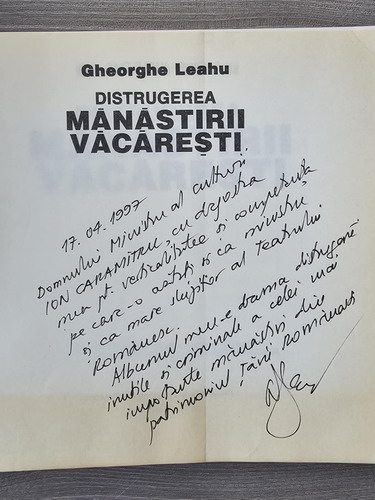 Gheorghe Leahu
DISTRUGEREA
MĂNĂSTIRII
VĂCĂREȘTI
17.04.1997
Domnului Ministru al culturii,
ION CARAMITRU cu deosebita
mea pt. verticalitatea și competența
pe care-o arătați și ca ministru
și ca mare slujitor al teatrului
Românesc.
Albumul meu-e drama distrugerii
inutile și criminale a celei mai
importante mănăstiri din
patrimoniul Țării Românești